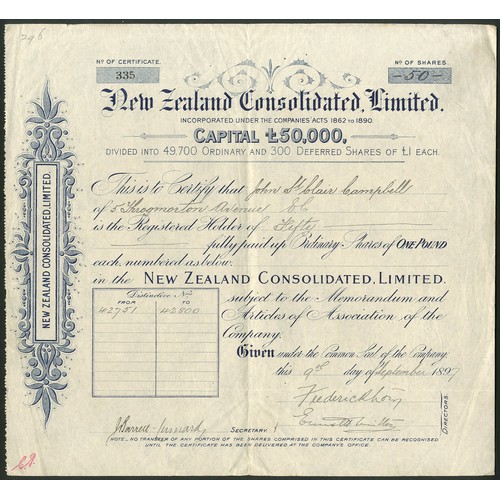 296
Nº OF CERTIFICATE.
335
Nº OF SHARES.
-50-
New Zealand Consolidated, Limited.
INCORPORATED UNDER THE COMPANIES' ACTS 1862 TO 1890.
CAPITAL £50,000,
DIVIDED INTO 49,700 ORDINARY AND 300 DEFERRED SHARES OF £1 EACH.
This is to Certify that John St Clair Campbell
of 5 Throgmorton Avenue E.C.
is the Registered Holder of Fifty
fully paid up Ordinary Shares of ONE POUND
each, numbered as below.
in the NEW ZEALAND CONSOLIDATED, LIMITED.
Distinctive Nos
FROM TO
42751 42800
subject to the Memorandum and
Articles of Association of the
Company.
Given under the Common Seal of the Company,
this 9th day of September 1897
Frederick
DIRECTORS.
SECRETARY
(NOTE, NO TRANSFER OF ANY PORTION OF THE SHARES COMPRISED IN THIS CERTIFICATE CAN BE RECOGNISED
UNTIL THE CERTIFICATE HAS BEEN DELIVERED AT THE COMPANY'S OFFICE.)
NEW ZEALAND CONSOLIDATED, LIMITED.